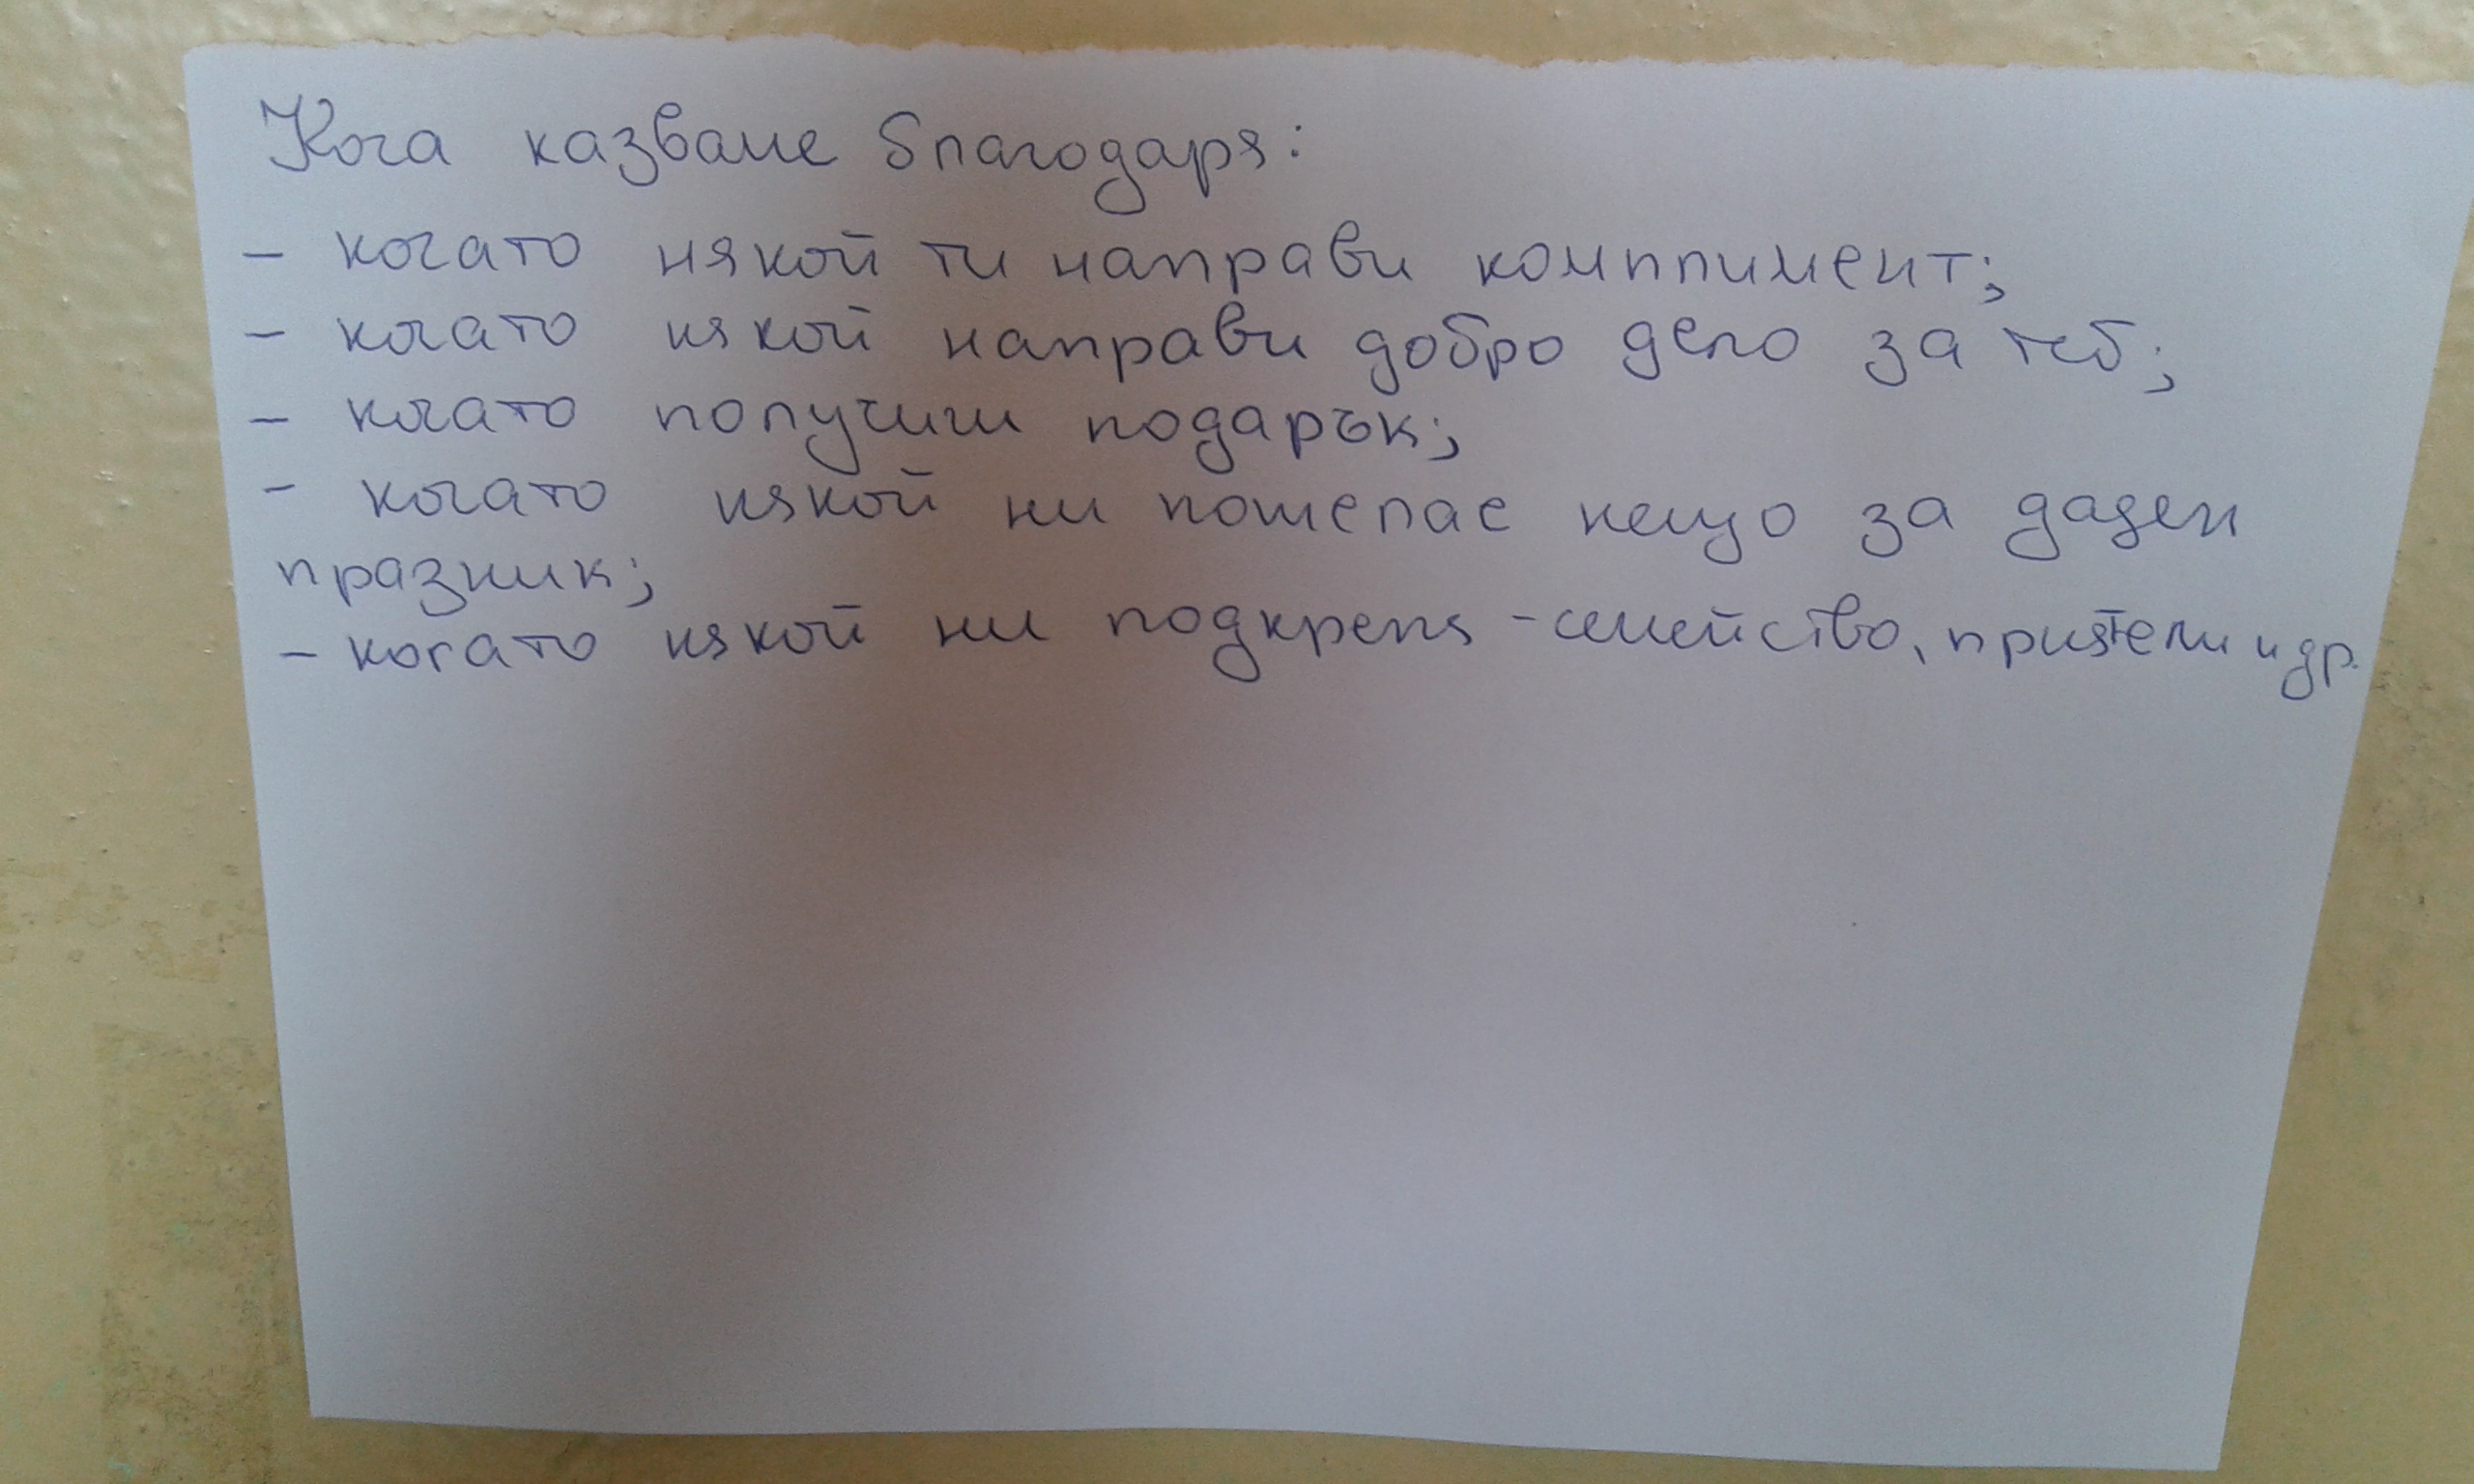 Кога казваме благодаря:
- когато някой ти направи комплимент;
- когато някой направи добро дело за теб;
- когато получиш подарък;
- когато някой ни пожелае нещо за даден
празник;
- когато някой ни подкрепя - семейство, приятели и др.